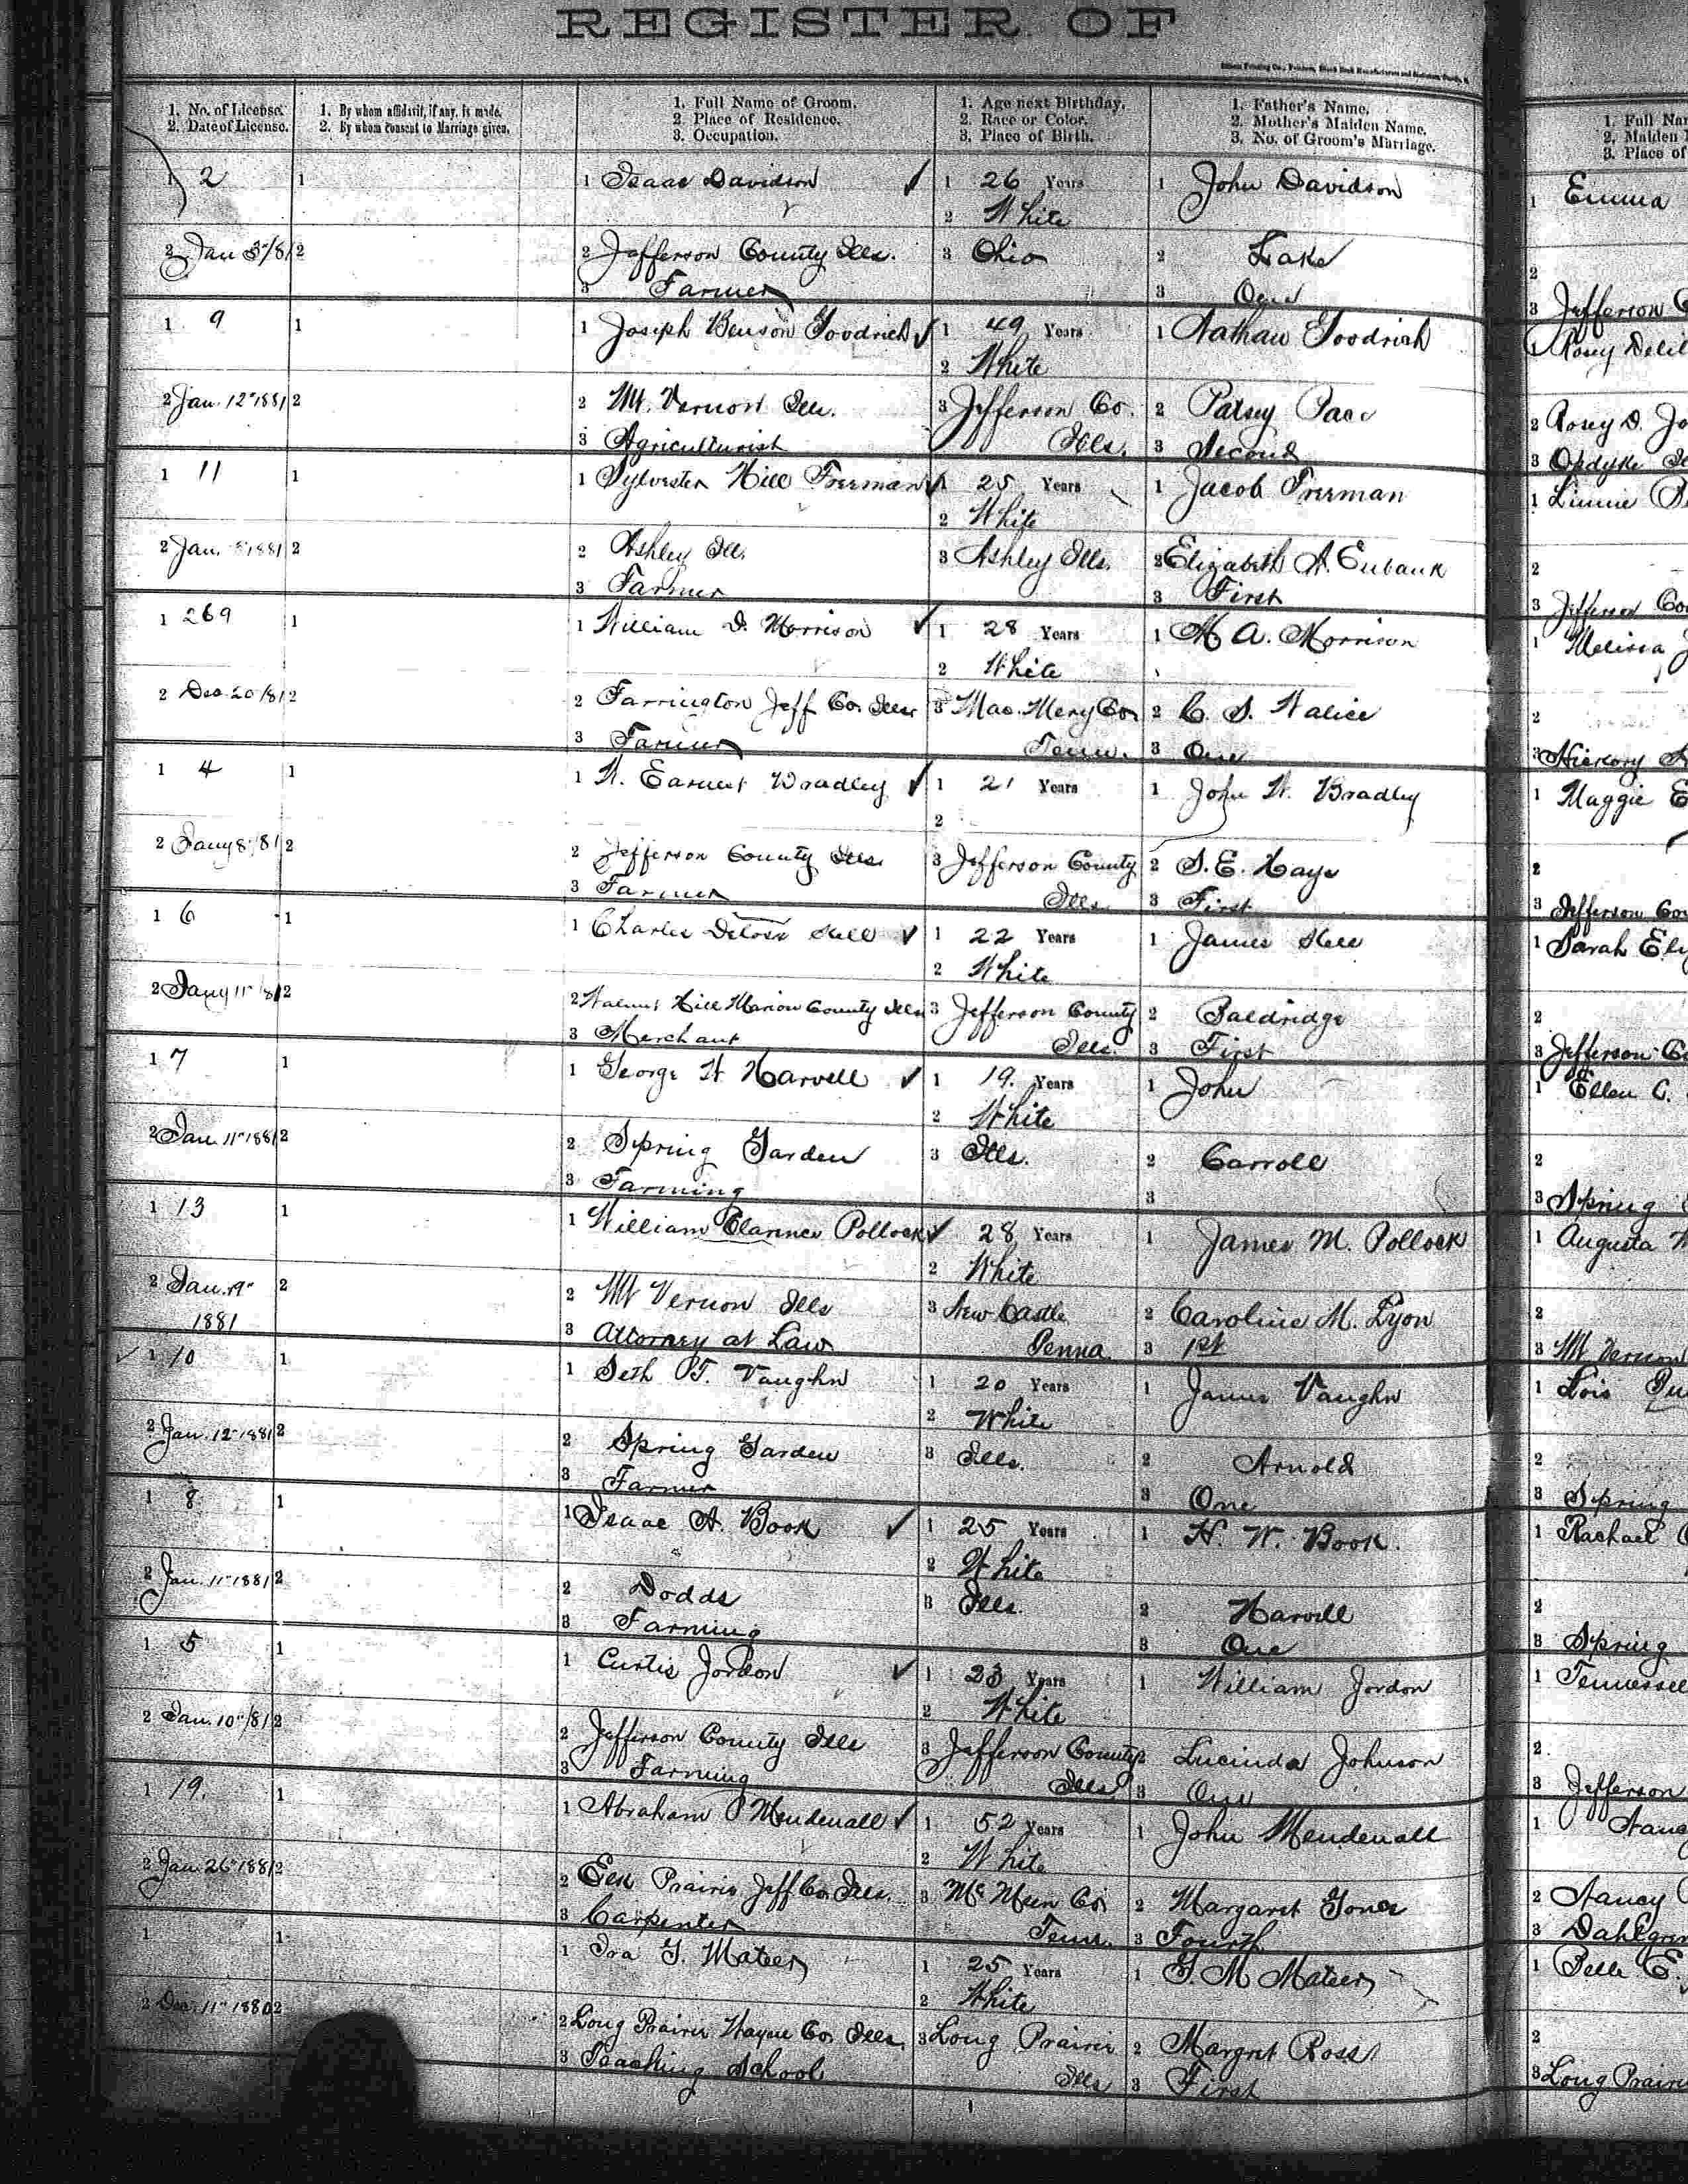 REGISTER OF
1. No. of License. 2. Date of License.
1. By whom affidavit, if any, is made. 2. By whom Consent to Marriage given.
1. Full Name of Groom. 2. Place of Residence. 3. Occupation.
1. Age next Birthday. 2. Race or Color. 3. Place of Birth.
1. Father's Name. 2. Mother's Maiden Name. 3. No. of Groom's Marriage.
1. Full Nam
2. Maiden
3. Place of
1 2 1 1 Isaac Davidson 1 26 Years 1 John Davidson 1 Emma
2 White
2 Jan 3/81 2 2 Jefferson County Ills. 3 Ohio 2 Lake 2
3 Farmer 3 One 3 Jefferson C
1 9 1 1 Joseph Benson Goodrich 1 49 Years 1 Nathan Goodrich 1 Rosey Delil
2 White
2 Jan. 12" 1881 2 2 Mt. Vernon Ills. 3 Jefferson Co. 2 Patsey Pace 2 Rosey D. Jo
3 Agriculturist Ills. 3 Second 3 Opdyke Il
1 11 1 1 Sylvester Hill Freeman 1 25 Years 1 Jacob Freeman 1 Linnie
2 White
2 Jan. 1881 2 2 Ashley Ill. 3 Ashley Ills. 2 Elizabeth A. Eubank 2
3 Farmer 3 First 3 Jefferson Co
1 269 1 1 William D. Morrison 1 28 Years 1 M A. Morrison 1 Melissa J
2 White
2 Dec 20/81 2 2 Farrington Jeff Co. Ills. 3 Mac. Meny Co. 2 C. S. Walice 2
3 Farmer Tenn. 3 One 3 Hickory
1 4 1 1 W. Earnest Bradley 1 21 Years 1 John W. Bradley 1 Maggie E
2
2 Jany 8"/81 2 2 Jefferson County Ills. 3 Jefferson County 2 S. E. Hays 2
3 Farmer Ills. 3 First 3 Jefferson Cou
1 6 1 1 Charles Deloss Hill 1 22 Years 1 James Hill 1 Sarah Eli
2 White
2 Jany 11"/81 2 2 Walnut Hill Marion County Ills 3 Jefferson County 2 Baldridge 2
3 Merchant Ills. 3 First 3 Jefferson Co
1 7 1 1 George W Harvell 1 19. Years 1 John 1 Ellen C.
2 White
2 Jan. 11" 1881 2 2 Spring Garden 3 Ills. 2 Carroll 2
3 Farming 3 3 Spring
1 13 1 1 William Clarence Pollock 28 Years 1 James M. Pollock 1 Augusta
2 White
2 Jan. 19" 2 2 Mt Vernon Ills 3 New Castle 2 Caroline M. Lyon 2
1881 3 Attorney at Law Penna. 3 1st 3 Mt Vernon
1 10 1 1 Seth T. Vaughn 1 20 Years 1 James Vaughn 1 Lois
2 White
2 Jan. 12" 1881 2 2 Spring Garden 3 Ills. 2 Arnold 2
3 Farmer 3 One 3 Spring
1 8 1 1 Isaac A. Book 1 25 Years 1 H. W. Book. 1 Rachael
2 White
2 Jan. 11" 1881 2 2 Dodds 3 Ills. 2 Harvell 2
3 Farming 3 One 3 Spring
1 5 1 1 Curtis Jordon 1 23 Years 1 William Jordon 1 Tennessee
2 White
2 Jan. 10"/81 2 2 Jefferson County Ills 3 Jefferson County 2 Lucinda Johnson 2
3 Farming Ills 3 One 3 Jefferson
1 19. 1 1 Abraham P Mendenall 1 52 Years 1 John Mendenall 1 Nanc
2 White
2 Jan 26" 1881 2 2 Elk Prairie Jeff Co. Ills. 3 Mc Meen Co. 2 Margaret Jones 2 Nancy
3 Carpenter Tenn. 3 Fourth 3 Dahlgren
1 1 1 Ira G. Mateer 1 25 Years 1 G. M Mateer 1 Belle E.
2 White
2 Dec. 11" 1880 2 2 Long Prairie Wayne Co. Ills. 3 Long Prairie 2 Margret Ross 2
3 Teaching School Ills 3 First 3 Long Prairie